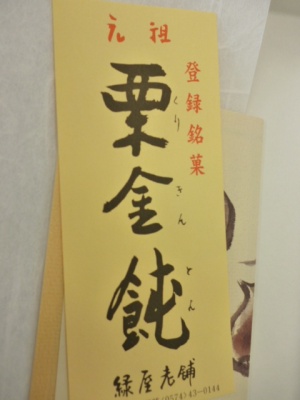 元祖
登録銘菓
栗金飩
くりきんとん
緑屋老舗
(0574)43-0144